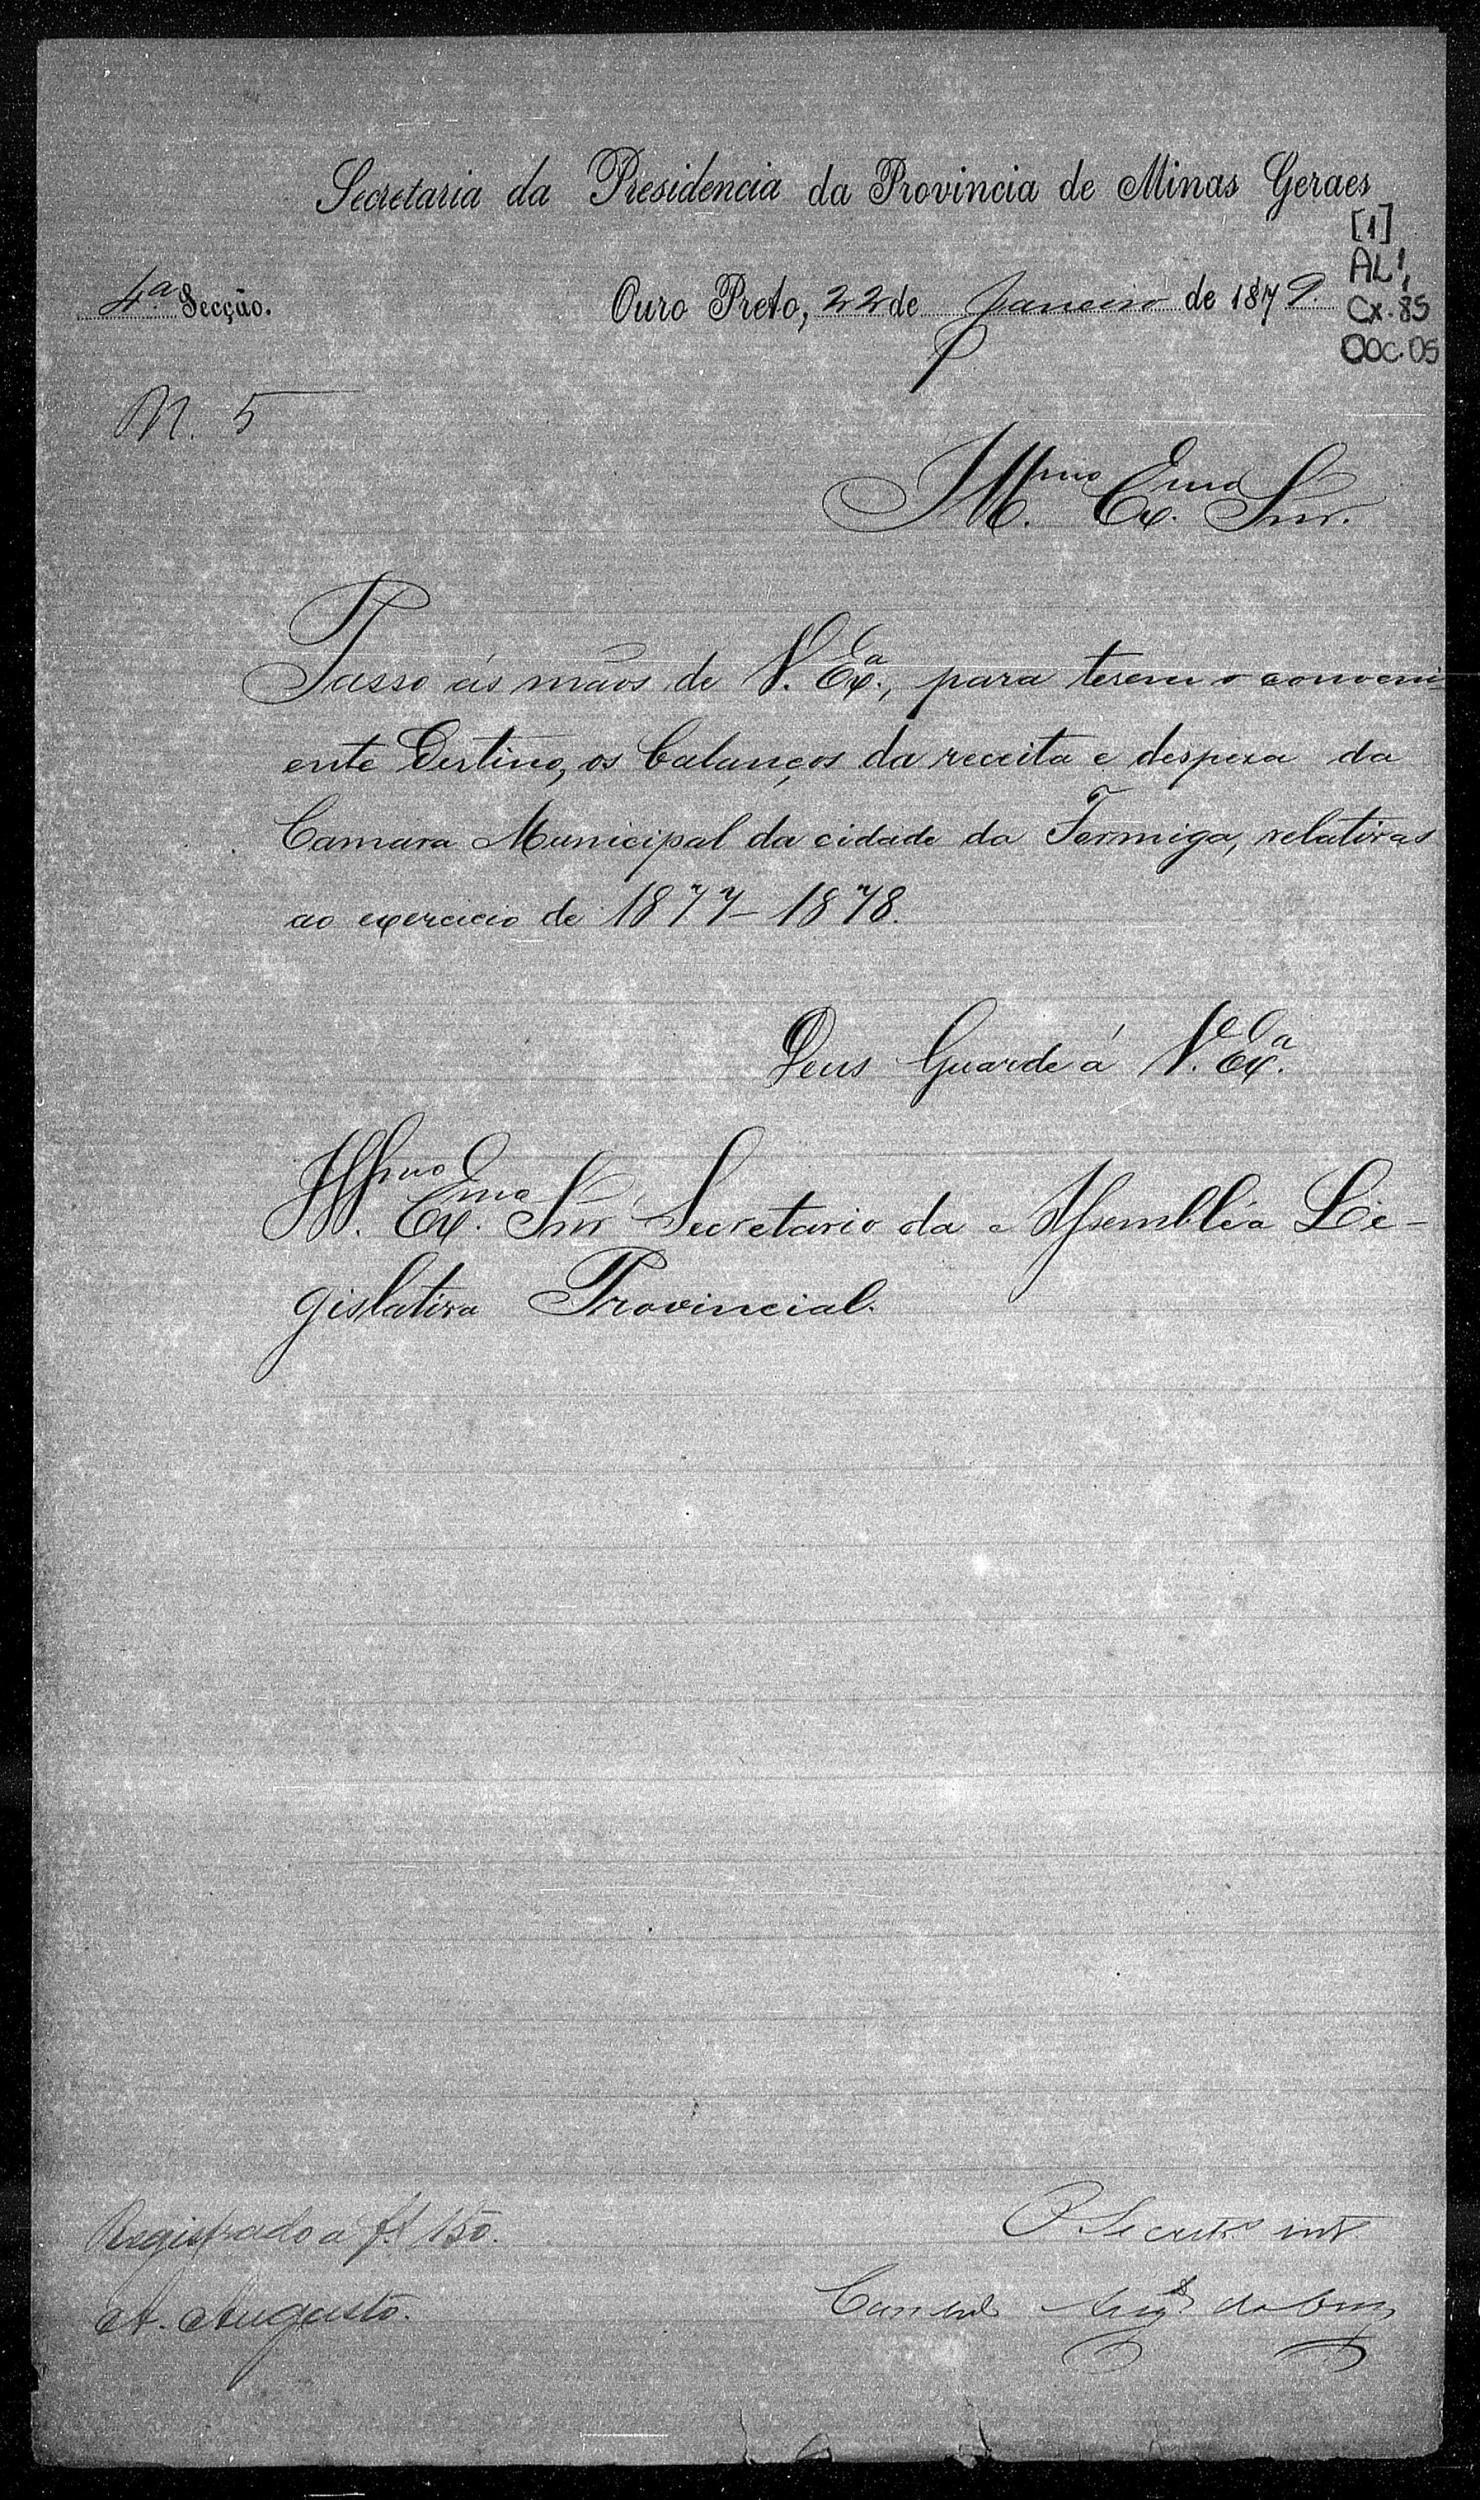 Secretaria da Presidencia da Provincia de Minas Geraes
[1]
AL1,
Cx.85
DOC.05
4ª Secção.
Ouro Preto, 22 de Janeiro de 1879.
N. 5
Illmo. Exmo. Snr.
Passo ás mãos de V. Exª., para terem o conveni-
ente destino, os balanços da receita e despeza da
Camara Municipal da cidade da Formiga, relativos
ao exercicio de 1877-1878.
Deus Guarde á V. Exª.
Illmo. Exmo. Snr Secretario da Assembléa Le-
gislativa Provincial.
Registrado a fl 150.
A. Augusto.
O Secretº intº
Augº da